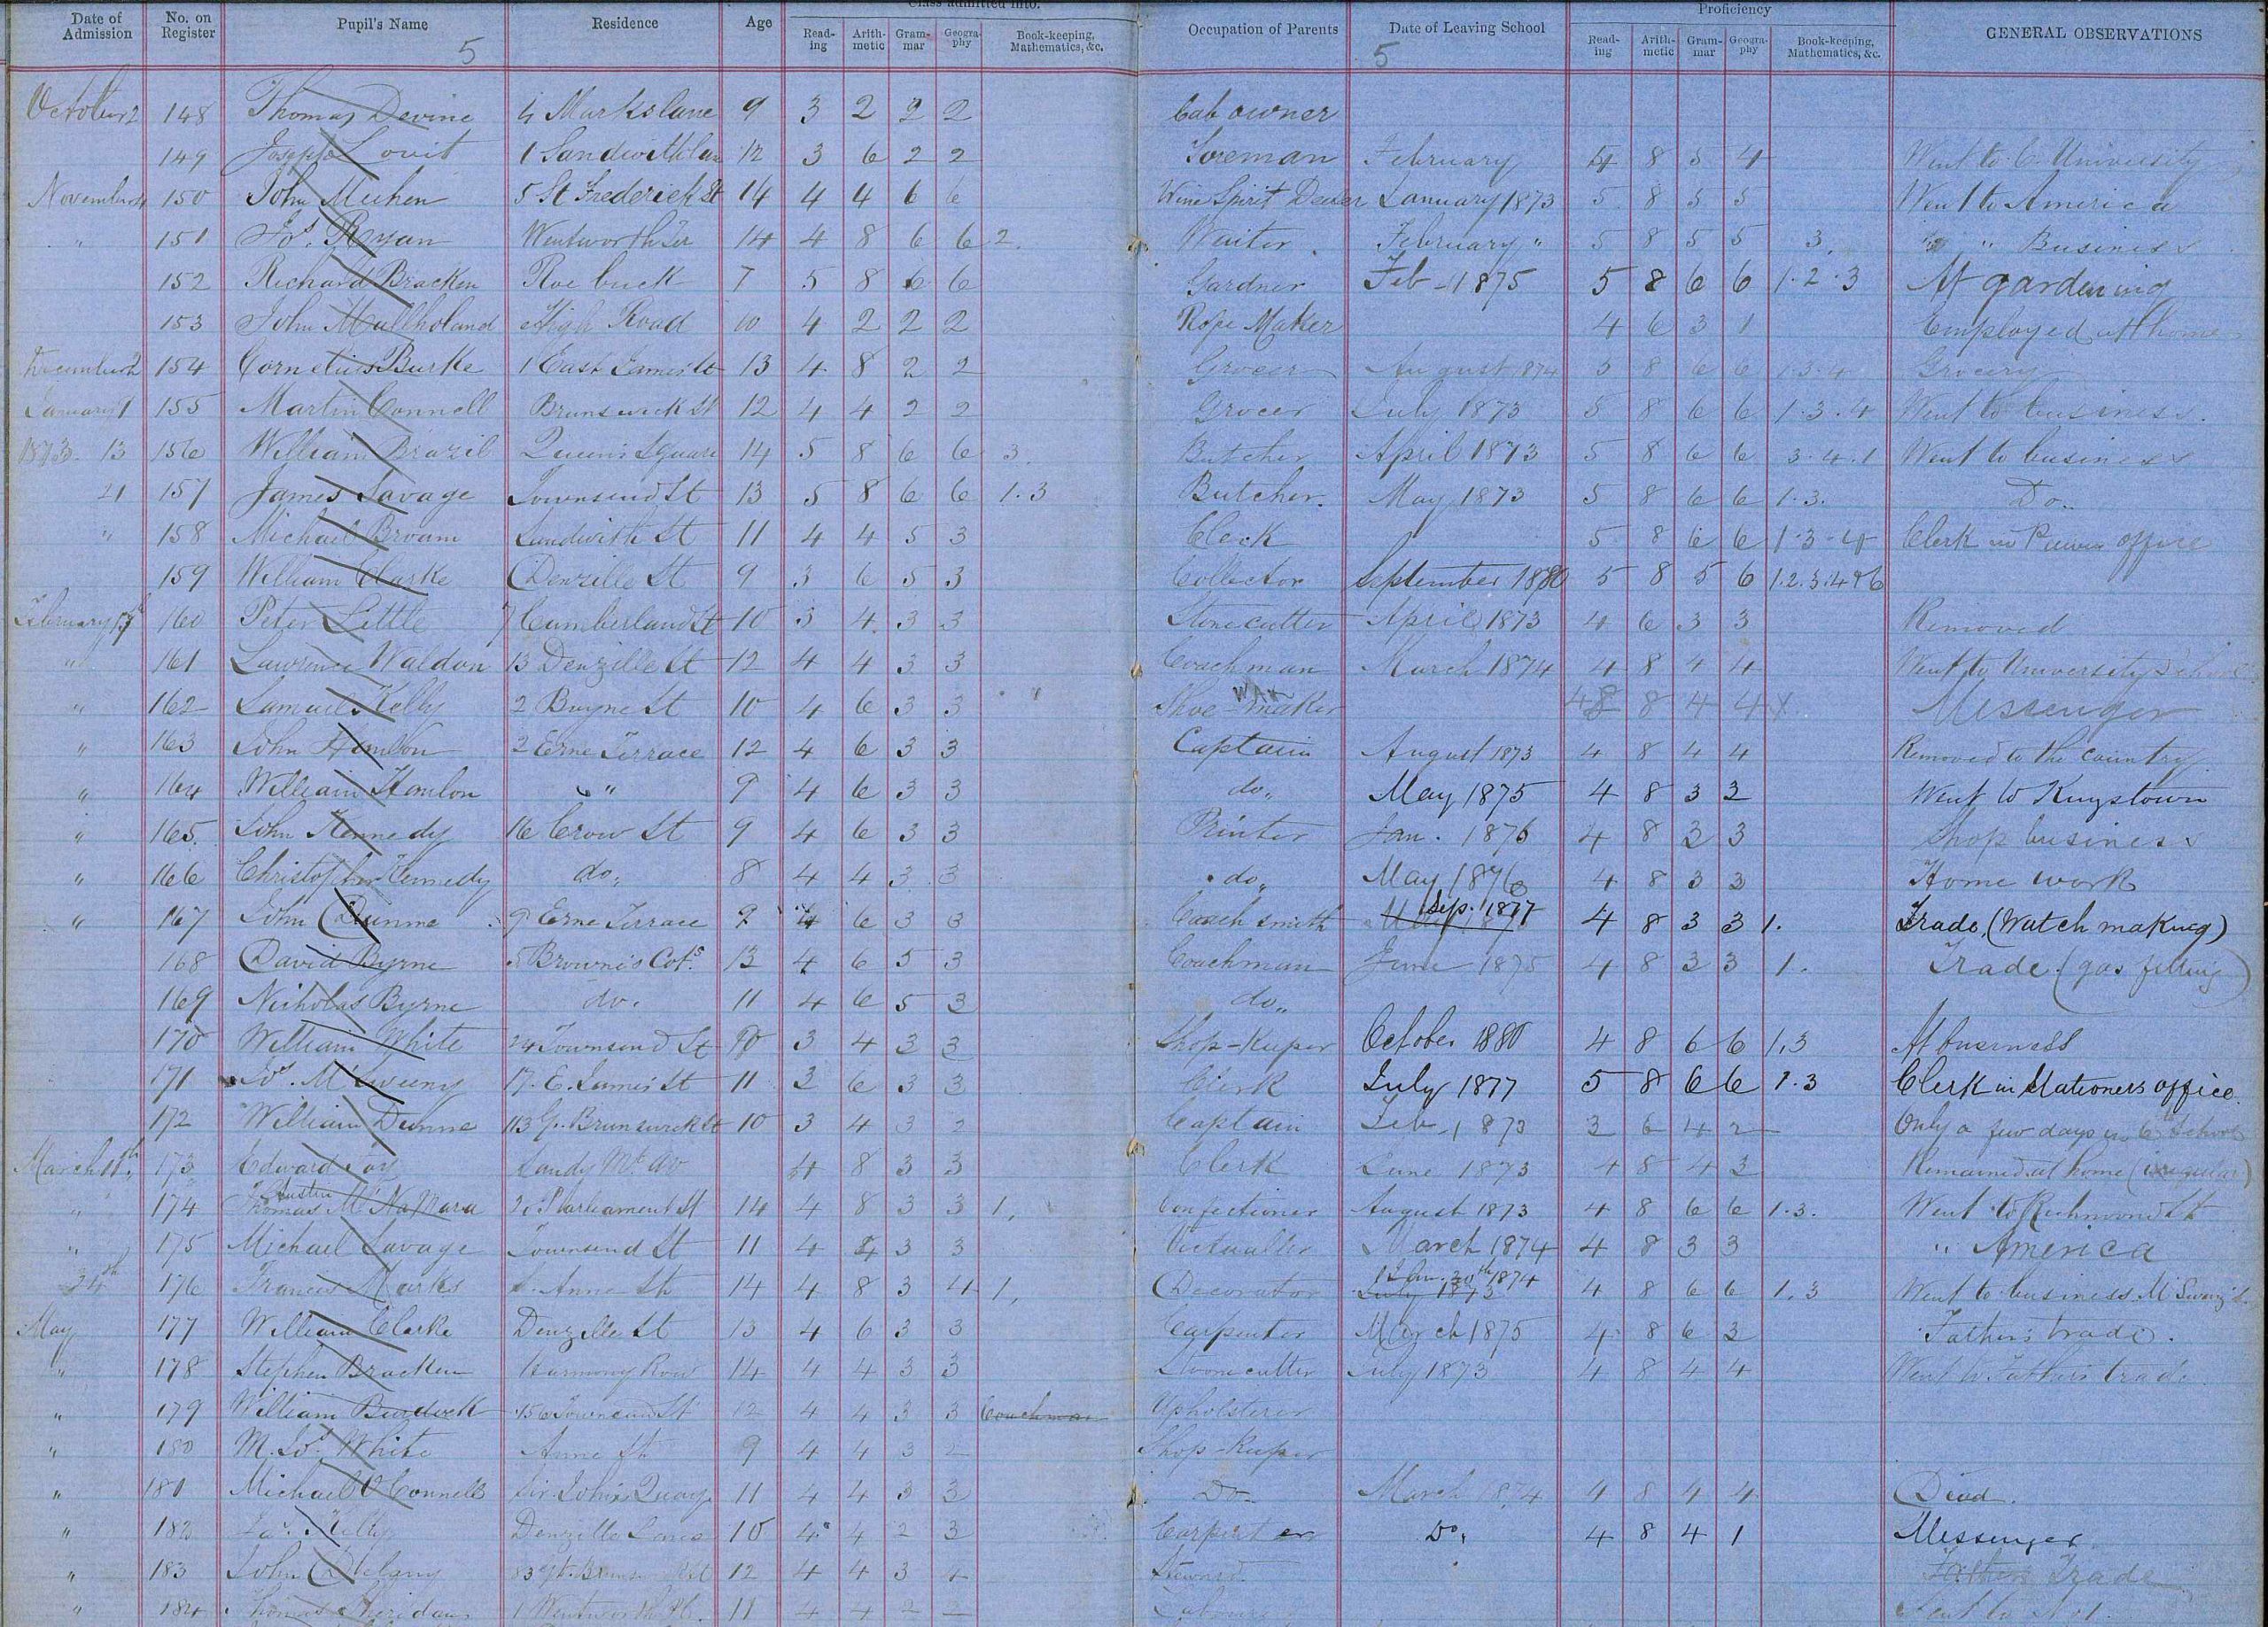 Class admitted into. Proficiency
Date of Admission No. on Register Pupil's Name Residence Age Read-ing Arith-metic Gram-mar Geogra-phy Book-keeping, Mathematics, &c. Occupation of Parents Date of Leaving School Read-ing Arith-metic Gram-mar Geogra-phy Book-keeping, Mathematics, &c. GENERAL OBSERVATIONS
5 5
October 2 148 Thomas Devine 4 Marks lane 9 3 2 2 2 Cab owner
149 Joseph Lovit 1 Sandwith lan 12 3 6 2 2 Foreman February 4 8 5 4 Went to C. University
November 4 150 John Meehen 5 St Frederick St 14 4 4 6 6 Wine Spirit Dealer January 1873 5 8 5 5 Went to America
" 151 Jos. Ryan Wentworth Ter 14 4 8 6 6 2. Waiter February " 5 8 5 5 3. " Business
152 Richard Bracken Roe buck 7 5 8 6 6 Gardner Feb - 1875 5 8 6 6 1.2.3 At gardening
153 John Mullholand High Road 10 4 2 2 2 Rope Maker 4 6 3 1 Employed at home
December 2 154 Cornelius Burke 1 East James St 13 4 8 2 2 Grocer August 1874 5 8 6 6 1.3.4 Grocery
January 1 155 Martin Connell Brunswick St 12 4 4 2 2 Grocer July 1873 5 8 6 6 1.3.4 Went to business.
1873. 13 156 William Brazil Queen's Square 14 5 8 6 6 3. Butcher April 1873 5 8 6 6 3.4.1 Went to business
21 157 James Savage Townsend St 13 5 8 6 6 1.3 Butcher. May 1873 5 8 6 6 1.3. Do..
" 158 Michael Broam Sandwith St 11 4 4 5 3 Clerk 5 8 6 6 1.3.4 Clerk in office
159 William Clarke Denzille St 9 3 6 5 3 Collector September 1880 5 8 5 6 1.2.3.4 & 6
February 17 160 Peter Little 7 Cumberland St 10 3 4 3 3 Stone cutter April 1873 4 6 3 3 Removed
" 161 Lawrence Waldon 13 Denzille St 12 4 4 3 3 Coachman March 1874 4 8 4 4 Went to University School
" 162 Samuel Kelly 2 Boyne St 10 4 6 3 3 Shoe maker 8 4 4 Messenger
" 163 John Hanlon 2 Erne Terrace 12 4 6 3 3 Captain August 1873 4 8 4 4 Removed to the country
" 164 William Hanlon " 9 4 6 3 3 do. May 1875 4 8 3 3 Went to Kingstown
" 165. John Kennedy 16 Crow St 9 4 6 3 3 Printer Jan. 1876 4 8 3 3 Shop business
" 166 Christopher Kennedy do. 8 4 4 3 3 do. May 1876 4 8 3 3 Home work
" 167 John Dunne 9 Erne Terrace 9 4 6 3 3 Coach smith Sep. 1877 4 8 3 3 1. Trade, (Watch making)
168 David Byrne 5 Browne's Cots 13 4 6 5 3 Coachman June 1875 4 8 3 3 1. Trade. (gas fitting)
169 Nicholas Byrne do. 11 4 6 5 3 do.
170 William White 24 Townsend St 10 3 4 3 3 Shop-keeper October 1880 4 8 6 6 1,3 At business
171 Jos. McSweeny 17. E. James St 11 3 6 3 3 Clerk July 1877 5 8 6 6 1.3 Clerk in Stationers office.
172 William Dunne 113 Gt. Brunswick St 10 3 4 3 2 Captain Feb. 1873 3 6 4 2 Only a few days in School
March 11th 173 Edward Foy Sandy Mt Av 4 8 3 3 Clerk June 1873 4 8 4 3 Remained at home (irregular)
" 174 Austin Thomas McNaMara 20 Parliament St 14 4 8 3 3 1, Confectioner August 1873 4 8 6 6 1.3. Went to Richmond St
" 175 Michael Savage Townsend St 11 4 4 3 3 Victualler March 1874 4 8 3 3 " America
24th 176 Francis Marks S. Anne St 14 4 8 3 4 1, Decorator July 1873 Jan. 20th 1874 4 8 6 6 1.3 Went to business
May 177 William Clarke Denzille St 13 4 6 3 3 Carpenter March 1875 4 8 6 3 Father's trade.
" 178 Stephen Bracken Harmony Row 14 4 4 3 3 Stonecutter July 1873 4 8 4 4 Went to Father's trade
" 179 William Burdick 156 Townsend St 12 4 4 3 3 Coachman Upholsterer
" 180 M. Jos. White Anne St 9 4 4 3 2 Shop-keeper
" 181 Michael O'Connell Sir John's Quay 11 4 4 3 3 Do March 1874 4 8 4 4 Dead.
" 182 Jas. Kelly Denzille Lane 10 4 4 2 3 Carpenter Do. 4 8 4 1 Messenger
" 183 John Delany 83 Gt. Brunswick St 12 4 4 3 Steward Father's Trade
" 184 Thomas Sheridan 1 Wentworth Pl. 11 4 4 2 2 Labourer Sent to